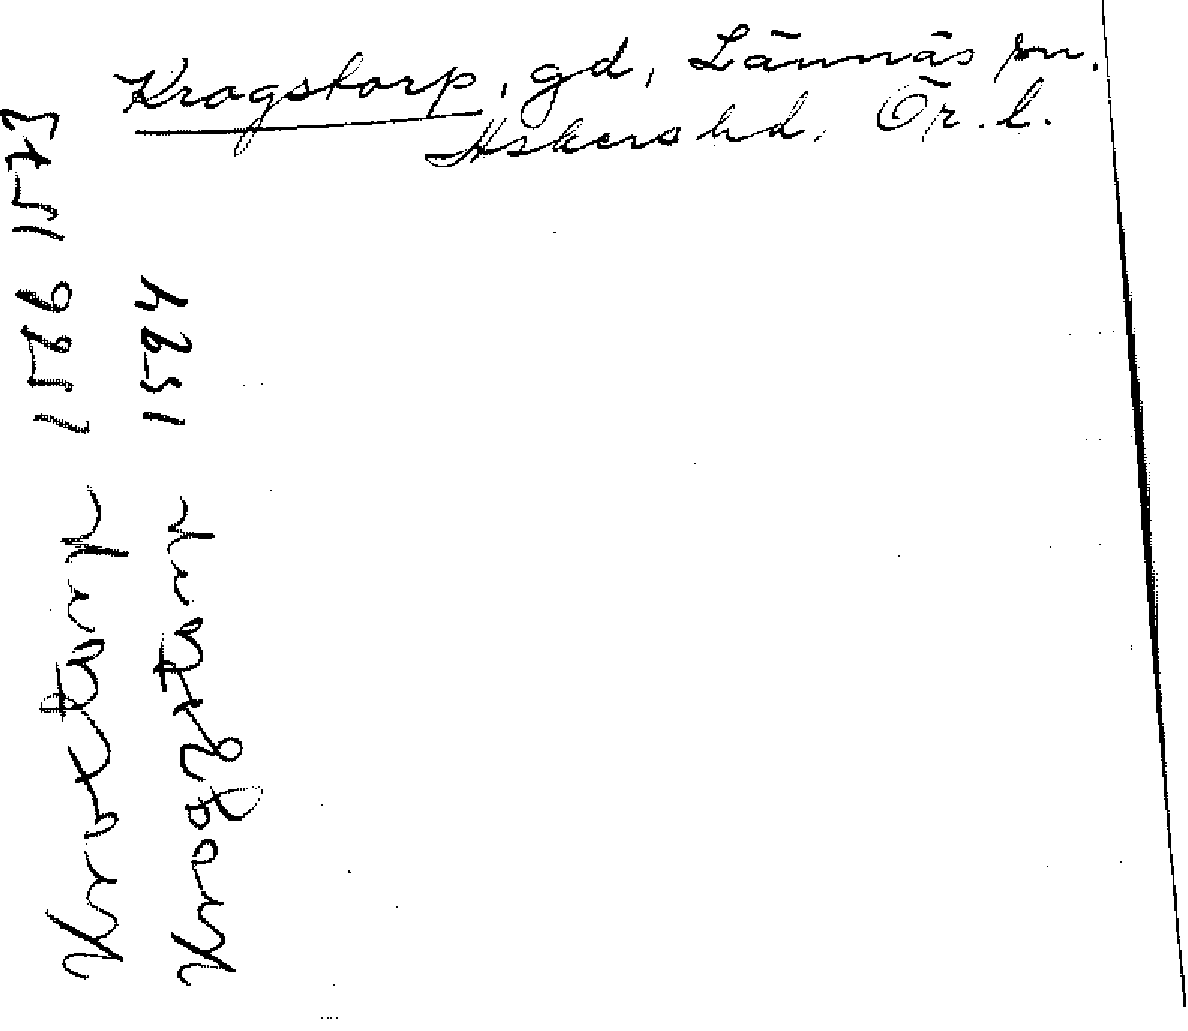 Krogstorp, gd, Lännäs sn.
Askers hd. Ör. l.
Krottorp 1566 1573
Krogztorp 1594